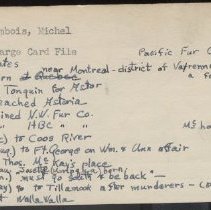 mbois, Michel
arge Card File
Pacific Fur C
ates
near Montreal - district of Varennes
rn at Quebec
a f
Tonquin for Astor
eached Astoria
ined N.W. Fur Co.
" HBC " "
Ms ho
) to Coos River
) to Ft. George on Wm & Ann affair
Thos. McKay's place
Josette born
out to Seattle & be back" —
) to Tillamook after murderers -
t Walla Walla